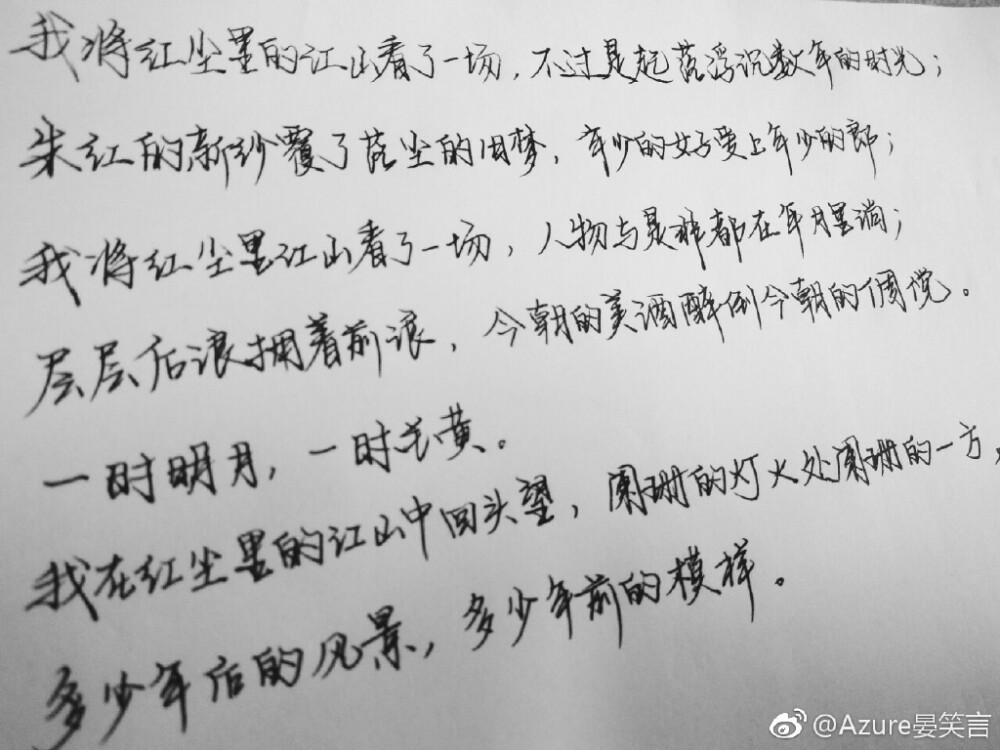 我将红尘里的江山看了一场，不过是起落浮沉数年的时光；
朱红的新纱覆了落尘的旧梦，年少的好爱上年少的郎；
我将红尘里江山看了一场，人物与是非都在年月里淌；
层层后浪拥着前浪，今朝的美酒醉倒今朝的惆怅。
一时明月，一时长黄。
我在红尘里的江山中回头望，阑珊的灯火处阑珊的一方，
多少年后的风景，多少年前的模样。
@Azure晏笑言